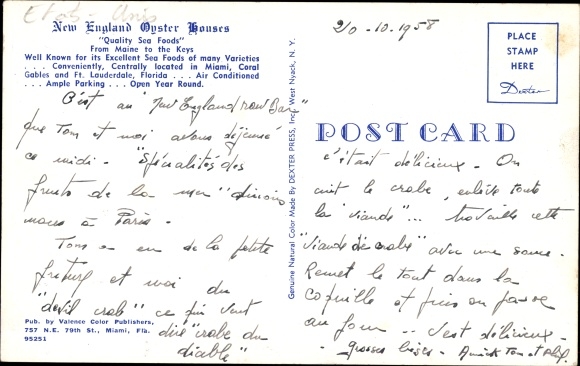 Etats-Unis
New England Oyster Houses
"Quality Sea Foods"
From Maine to the Keys
Well Known for its Excellent Sea Foods of many Varieties
. . . Conveniently, Centrally located in Miami, Coral
Gables and Ft. Lauderdale, Florida . . . Air Conditioned
. . . Ample Parking . . . Open Year Round.
C'est au "New England raw Bar"
que Tom et moi avons déjeuné
ce midi - "Spécialités des
fruits de la mer" dirions
nous à Paris -
Tom a eu de la petite
friture et moi du
"devil crab" ce qui veut
dire "crabe du
diable"
Pub. by Valence Color Publishers,
757 N.E. 79th St., Miami, Fla.
95251
Genuine Natural Color Made By DEXTER PRESS, Inc. West Nyack, N. Y.
20-10-1958
PLACE
STAMP
HERE
Dexter
POST CARD
c'était délicieux - On
cuit le crabe, enlève toute
la "viande"... travaille cette
"viande de crabe" avec une sauce.
Remet le tout dans la
coquille et puis on passe
au four -- C'est délicieux -
- grosses bises - Annick Tom et